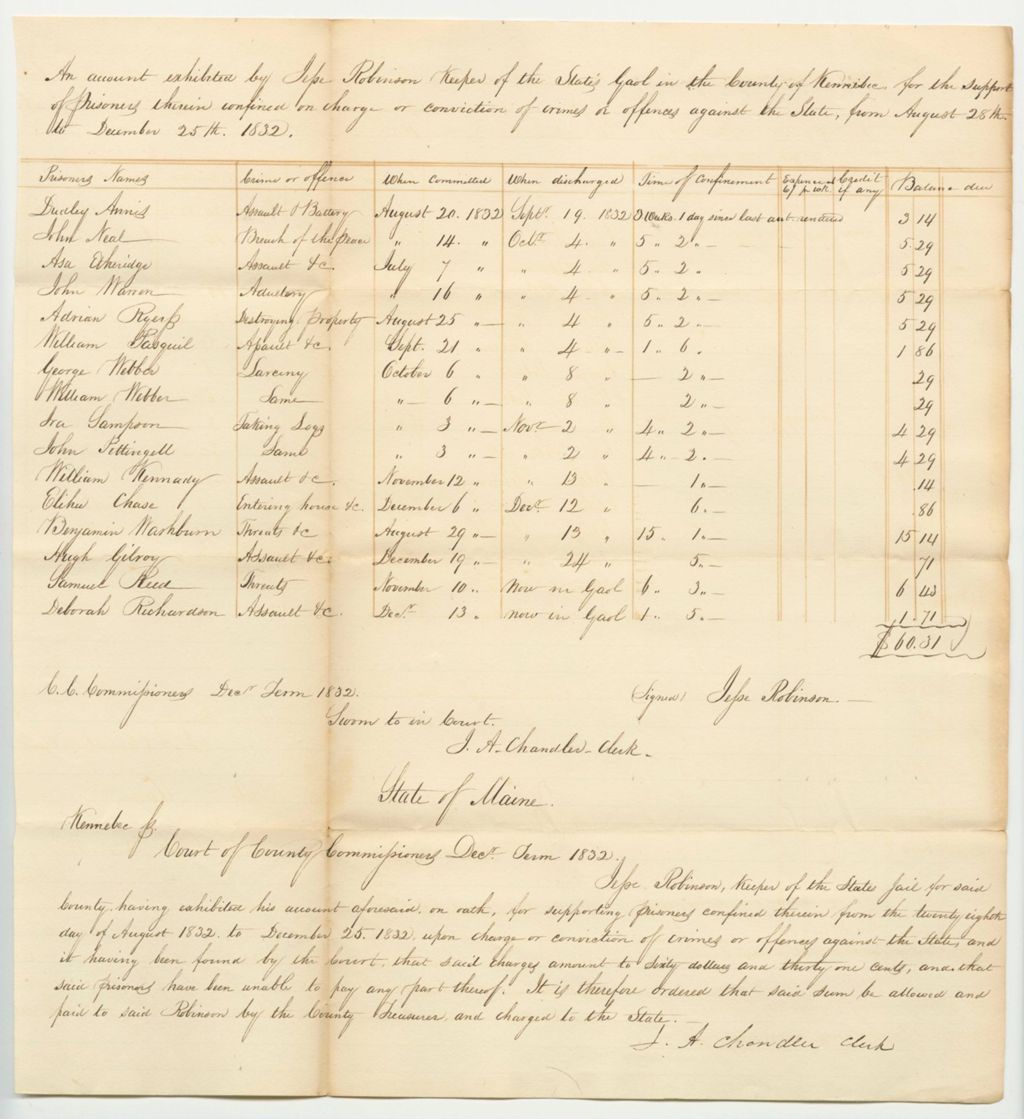 An account exhibited by Jesse Robinson Keeper of the State's Gaol in the County of Kennebec for the support
of Prisoners therein confined on charge or conviction of crimes or offences against the State, from August 28th.
to December 25th. 1832.
Prisoners Names Crime or offence When committed When discharged Time of Confinement Expences Credit if any Balance due
Dudley Annis Assault & Battery August 20. 1832 Sept. 19. 1832 3 Weeks. 1 day since last acct rendered 3 14
John Neal Breach of the Peace " 14. " Octr. 4. " 5 " 2 " 5.29
Asa Etheridge Assault &c. July 7 " " 4 " 5 " 2 " 5 29
John Warren Adultery " 16 " " 4 " 5 " 2 " 5 29
Adrian Ryerss Destroying Property August 25 " " 4 " 5 " 2 " 5 29
William Pasquil Assault &c. Sept. 21 " " 4 " 1 " 6 " 1 86
George Webber Larceny October 6 " " 8 " 2 " 29
William Webber Same " 6 " " 8 " 2 " 29
Ira Sampson Taking Logs " 3 " Novr. 2 " 4 " 2 " 4 29
John Pettingell Same " 3 " " 2 " 4 " 2 " 4 29
William Kennady Assault &c. November 12 " " 13 " 1 " .14
Elihu Chase Entering house &c. December 6 " Decr. 12 " 6 " .86
Benjamin Washburn Threats &c August 29 " " 13 " 15 " 1 " 15 14
Hugh Gilroy Assault &c. December 19 " " 24 " 5 " 71
Samuel Reed Threats November 10 " Now in Gaol 6 " 3 " 6 43
Deborah Richardson Assault &c. Decr. 13 " now in Gaol 1 " 5 " 1.71
$60.31
C. C. Commissioners Decr Term 1832. (Signed) Jesse Robinson
Sworn to in Court.
J. A. Chandler Clerk
State of Maine.
Kennebec ss.
Court of County Commissioners Decr. Term 1832.
Jesse Robinson, Keeper of the State Jail for said
County having exhibited his account aforesaid on oath, for supporting prisoners confined therein from the twenty eighth
day of August 1832. to December 25. 1832, upon charge or conviction of crimes or offences against the State, and
it having been found by the Court, that said charges amount to Sixty dollars and thirty one cents, and that
said prisoners have been unable to pay any part thereof. It is therefore ordered that said sum be allowed and
paid to said Robinson by the County Treasurer and charged to the State.
J. A. Chandler Clerk